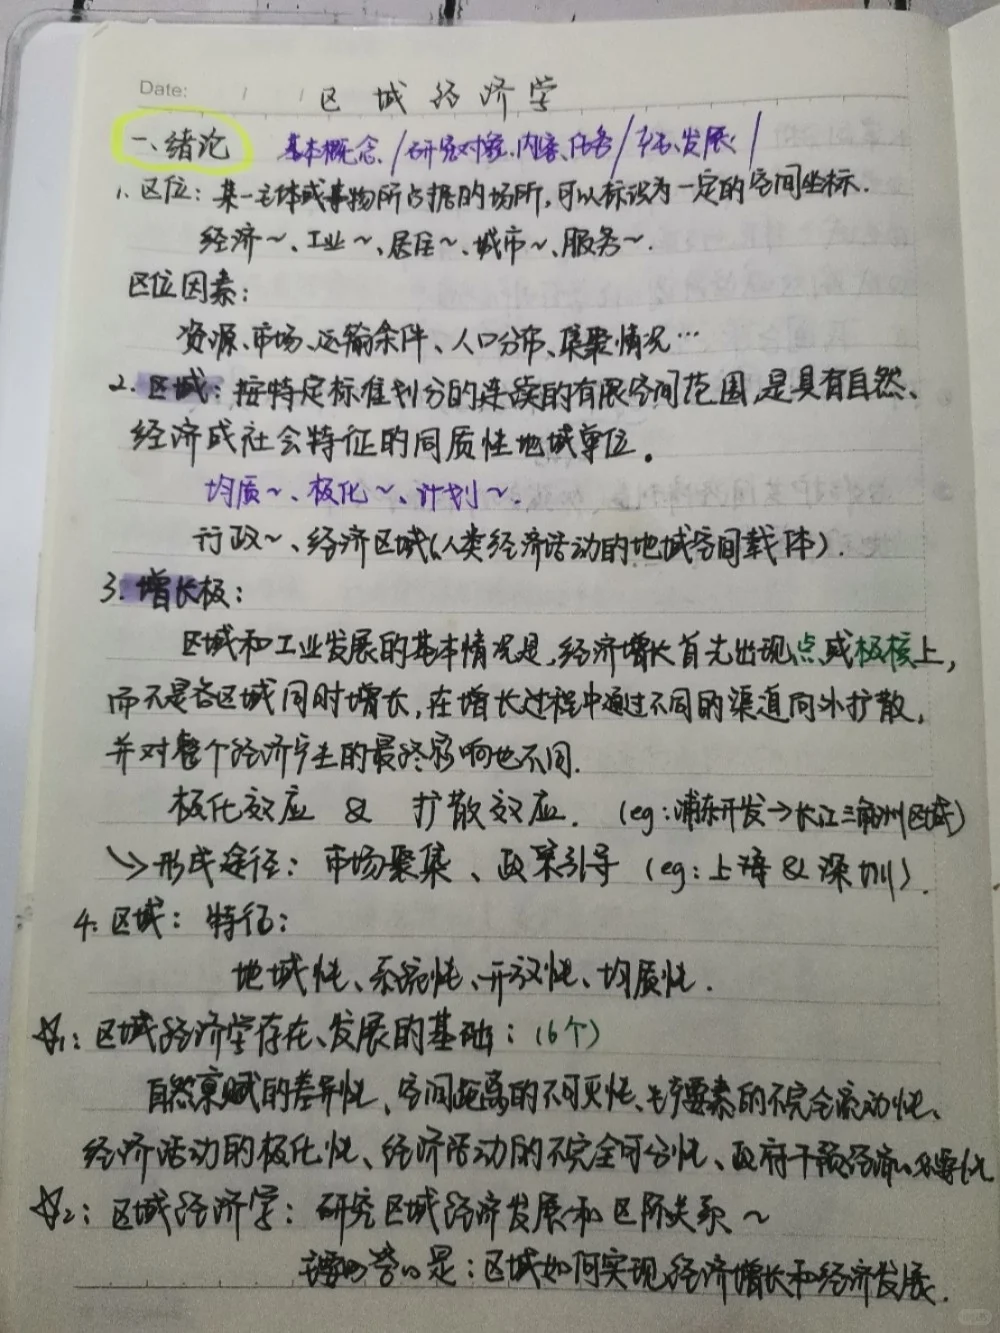 Date: / /
区域经济学
一、绪论 基本概念/研究对象、内容、任务/产生、发展/
1. 区位：某一主体或事物所占据的场所，可以标识为一定的空间坐标.
经济~、工业~、居住~、城市~、服务~.
区位因素：
资源、市场、运输条件、人口分布、集聚情况…
2. 区域：按特定标准划分的连续的有限空间范围，是具有自然、
经济或社会特征的同质性地域单位。
均质~、极化~、计划~.
行政~、经济区域(人类经济活动的地域空间载体).
3. 增长极：
区域和工业发展的基本情况是，经济增长首先出现点或极核上，
而不是各区域同时增长，在增长过程中通过不同的渠道向外扩散，
并对整个经济产生的最终影响也不同.
极化效应 & 扩散效应. (eg：浦东开发→长江三角洲区域)
↘形成途径：市场聚集、政策引导 (eg：上海&深圳).
4. 区域：特征：
地域性、系统性、开放性、均质性.
☆1：区域经济学存在、发展的基础：(6个)
自然禀赋的差异性、空间距离的不可灭性、生产要素的不完全流动性、
经济活动的极化性、经济活动的不完全可分性、政府干预经济
☆2：区域经济学：研究区域经济发展和区际关系~
是：区域如何实现经济增长和经济发展.